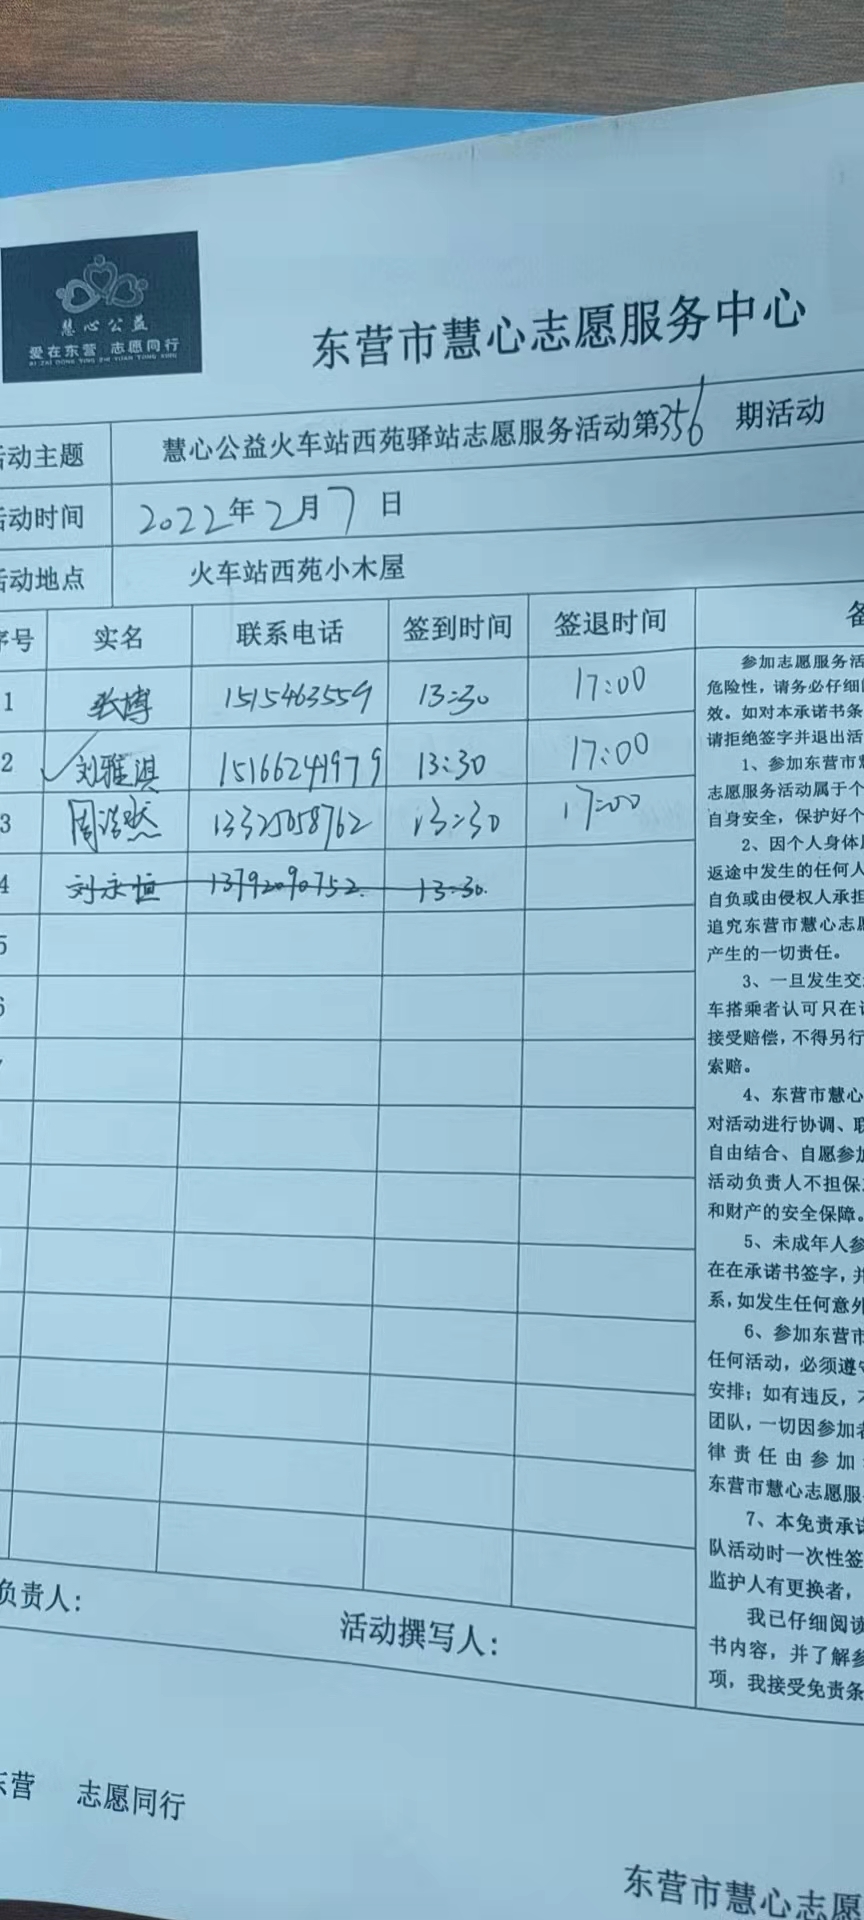 慧心公益
爱在东营 志愿同行
AI ZAI DONG YING ZHI YUAN TONG XING
东营市慧心志愿服务中心
活动主题 慧心公益火车站西苑驿站志愿服务活动第356期活动
活动时间 2022年2月7日
活动地点 火车站西苑小木屋
序号 实名 联系电话 签到时间 签退时间 备
1 张博 1515463559 13:30 17:00
2 刘雅淇 15166241979 13:30 17:00
3 周浩然 13325058762 13:30 17:00
4 刘永恒 13792090752 13:30.
5
6
参加志愿服务活
危险性,请务必仔细阅
效。如对本承诺书条
请拒绝签字并退出活
1、参加东营市慧
志愿服务活动属于个
自身安全,保护好个
2、因个人身体原
返途中发生的任何人
自负或由侵权人承担
追究东营市慧心志愿
产生的一切责任。
3、一旦发生交通
车搭乘者认可只在认
接受赔偿,不得另行
索赔。
4、东营市慧心
对活动进行协调、联
自由结合、自愿参加
活动负责人不担保
和财产的安全保障。
5、未成年人参
在在承诺书签字,并
系,如发生任何意外
6、参加东营市
任何活动,必须遵守
安排;如有违反,不
团队,一切因参加者
律责任由参加
东营市慧心志愿服
7、本免责承诺
队活动时一次性签
监护人有更换者,
我已仔细阅读
书内容,并了解参
项,我接受免责条
负责人: 活动撰写人:
东营 志愿同行
东营市慧心志愿